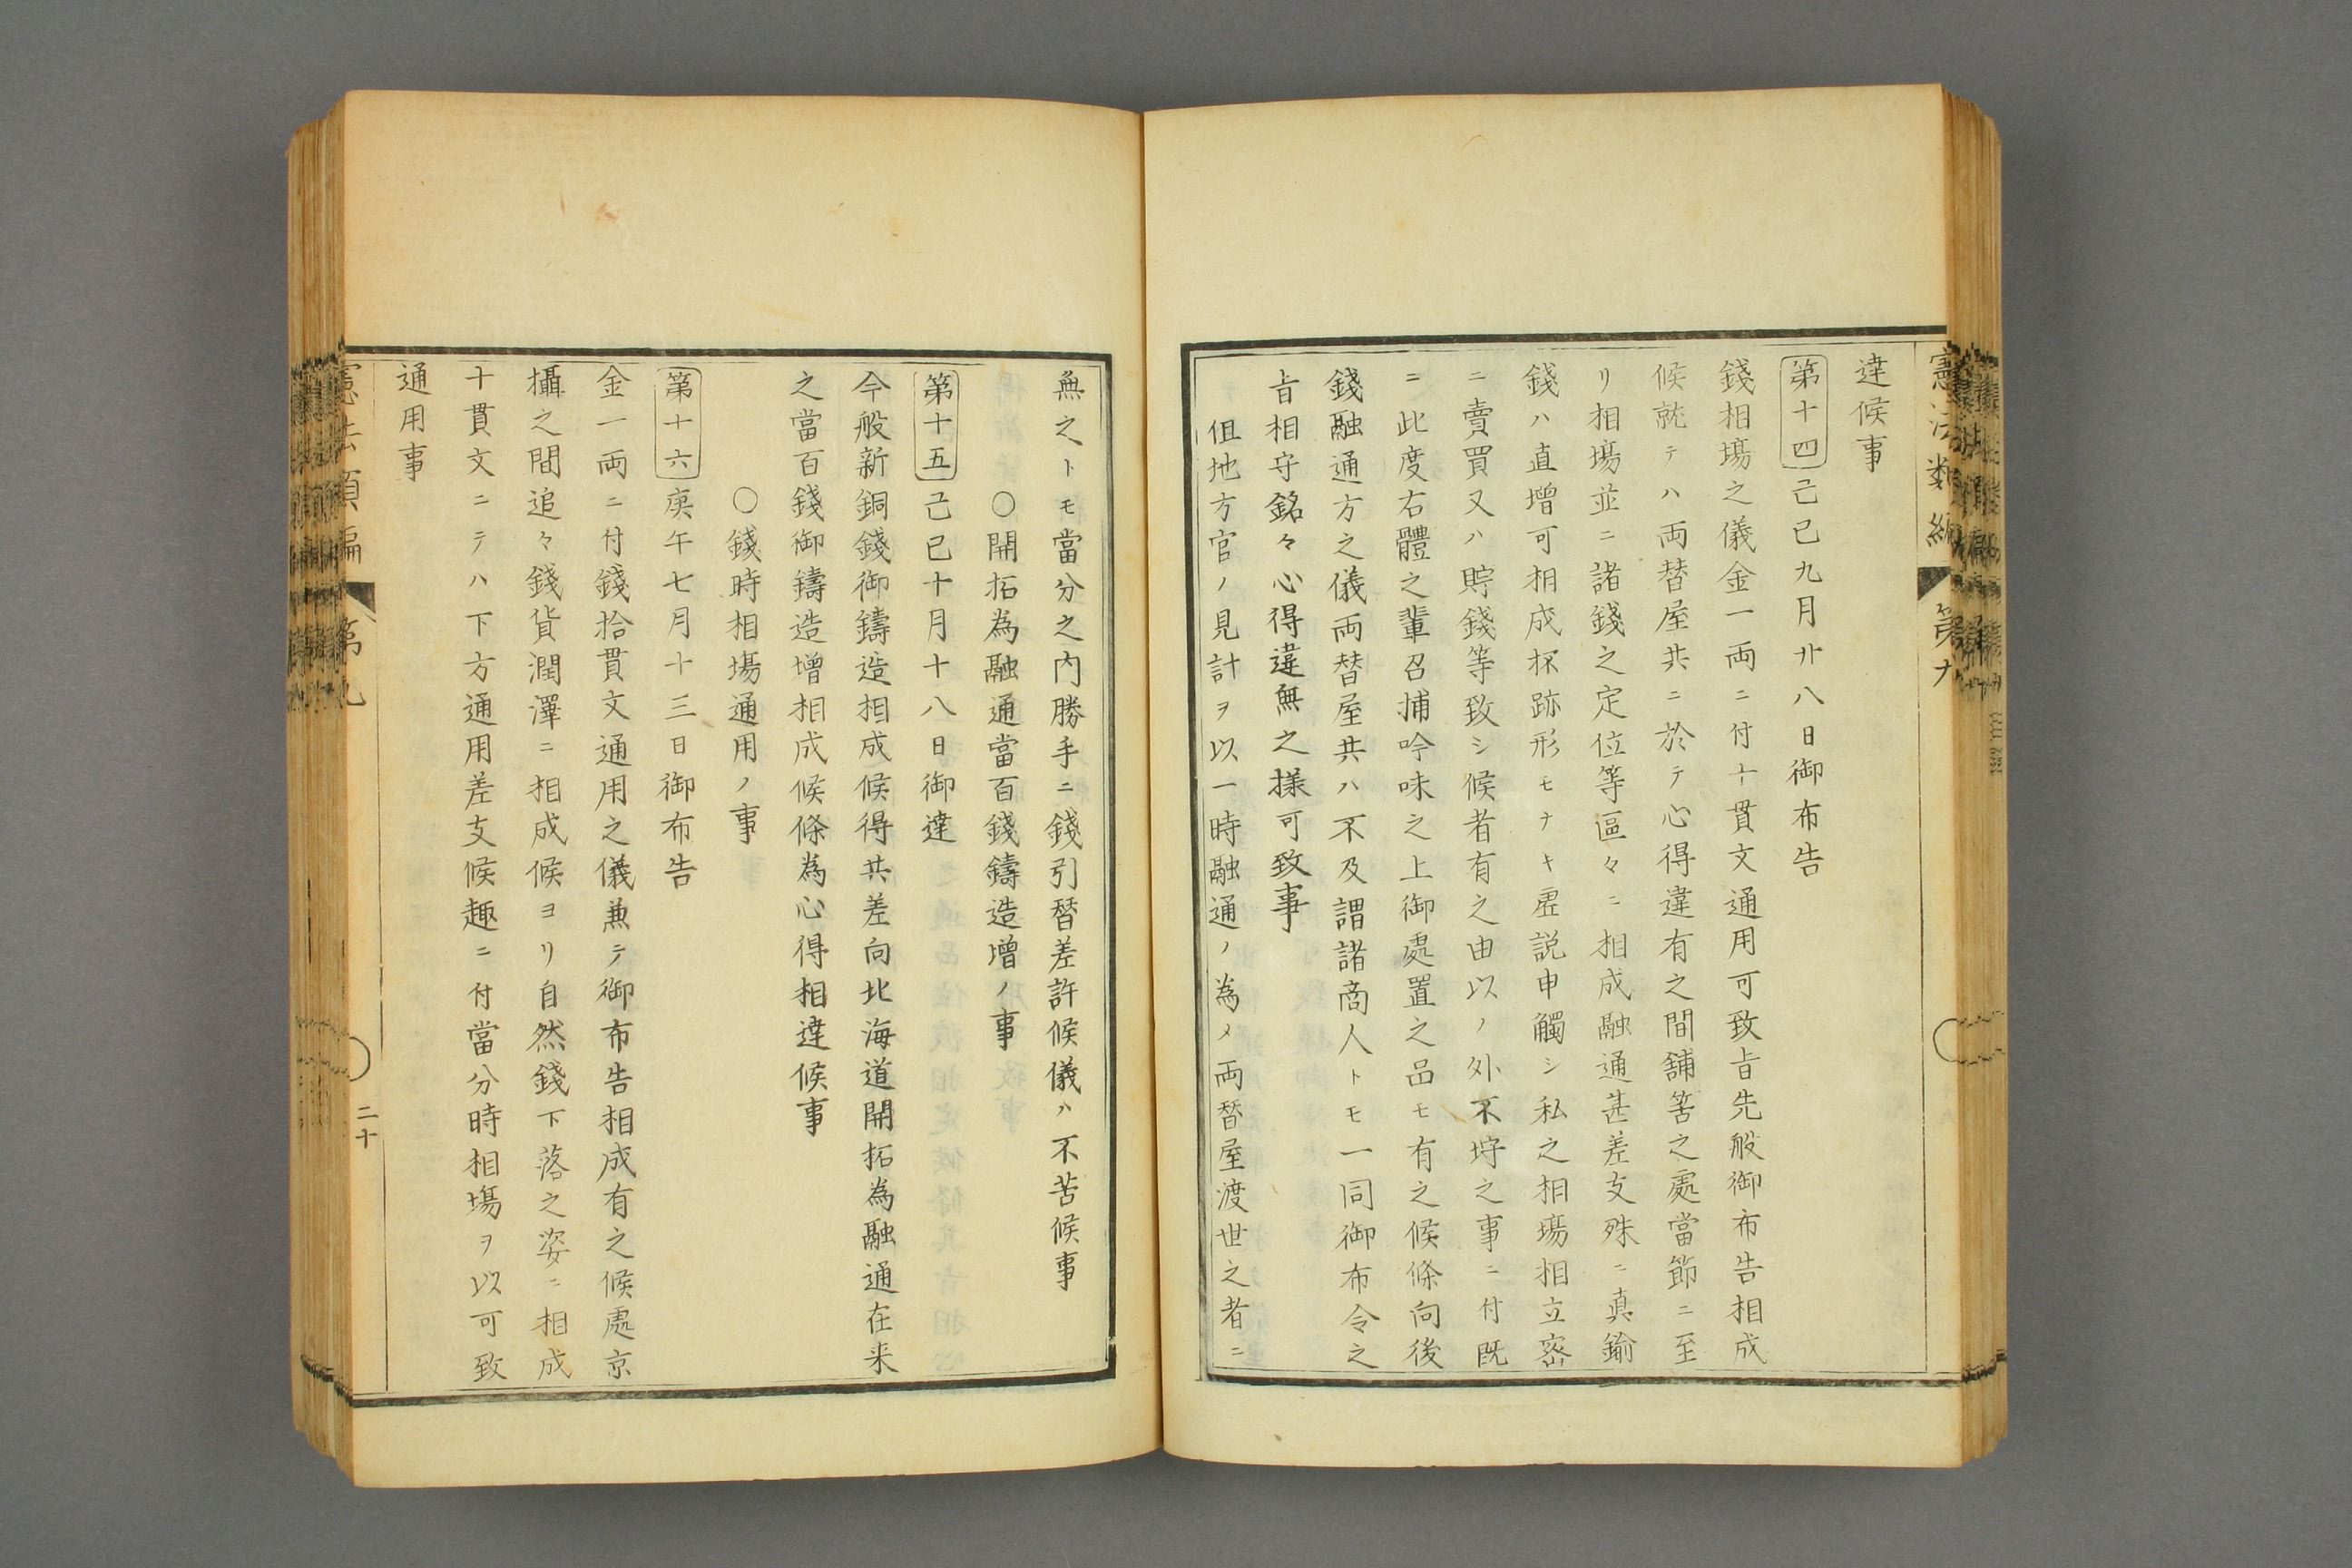 憲法類編
第九
達候事
第十四 己巳九月廿八日御布告
錢相塲之儀金一両ニ付十貫文通用可致旨先般御布告相成
候就テハ両替屋共ニ於テ心得違有之間舗筈之處當節ニ至
リ相塲並ニ諸錢之定位等區々ニ相成融通甚差支殊ニ真鍮
錢ハ直増可相成抔跡形モナキ虚説申觸シ私之相塲相立密
ニ賣買又ハ貯錢等致シ候者有之由以ノ外不埒之事ニ付既
ニ此度右體之輩召捕吟味之上御處置之品モ有之候條向後
錢融通方之儀両替屋共ハ不及謂諸商人トモ一同御布令之
旨相守銘々心得違無之様可致事
但地方官ノ見計ヲ以一時融通ノ為メ両替屋渡世之者ニ
無之トモ當分之内勝手ニ錢引替差許候儀ハ不苦候事
○開拓為融通當百錢鑄造増ノ事
第十五 己巳十月十八日御達
今般新銅錢御鑄造相成候得共差向北海道開拓為融通在来
之當百錢御鑄造増相成候條為心得相達候事
○錢時相塲通用ノ事
第十六 庚午七月十三日御布告
金一両ニ付錢拾貫文通用之儀兼テ御布告相成有之候處京
攝之間追々錢貨潤澤ニ相成候ヨリ自然錢下落之姿ニ相成
十貫文ニテハ下方通用差支候趣ニ付當分時相塲ヲ以可致
通用事
憲法類編
第九
二十